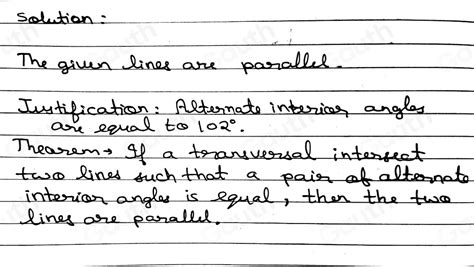 Solution:
The given lines are parallel.
Justification: Alternate interior angles
are equal to 102°.
Theorem→ If a transversal intersect
two lines such that a pair of alternate
interior angles is equal, then the two
lines are parallel.